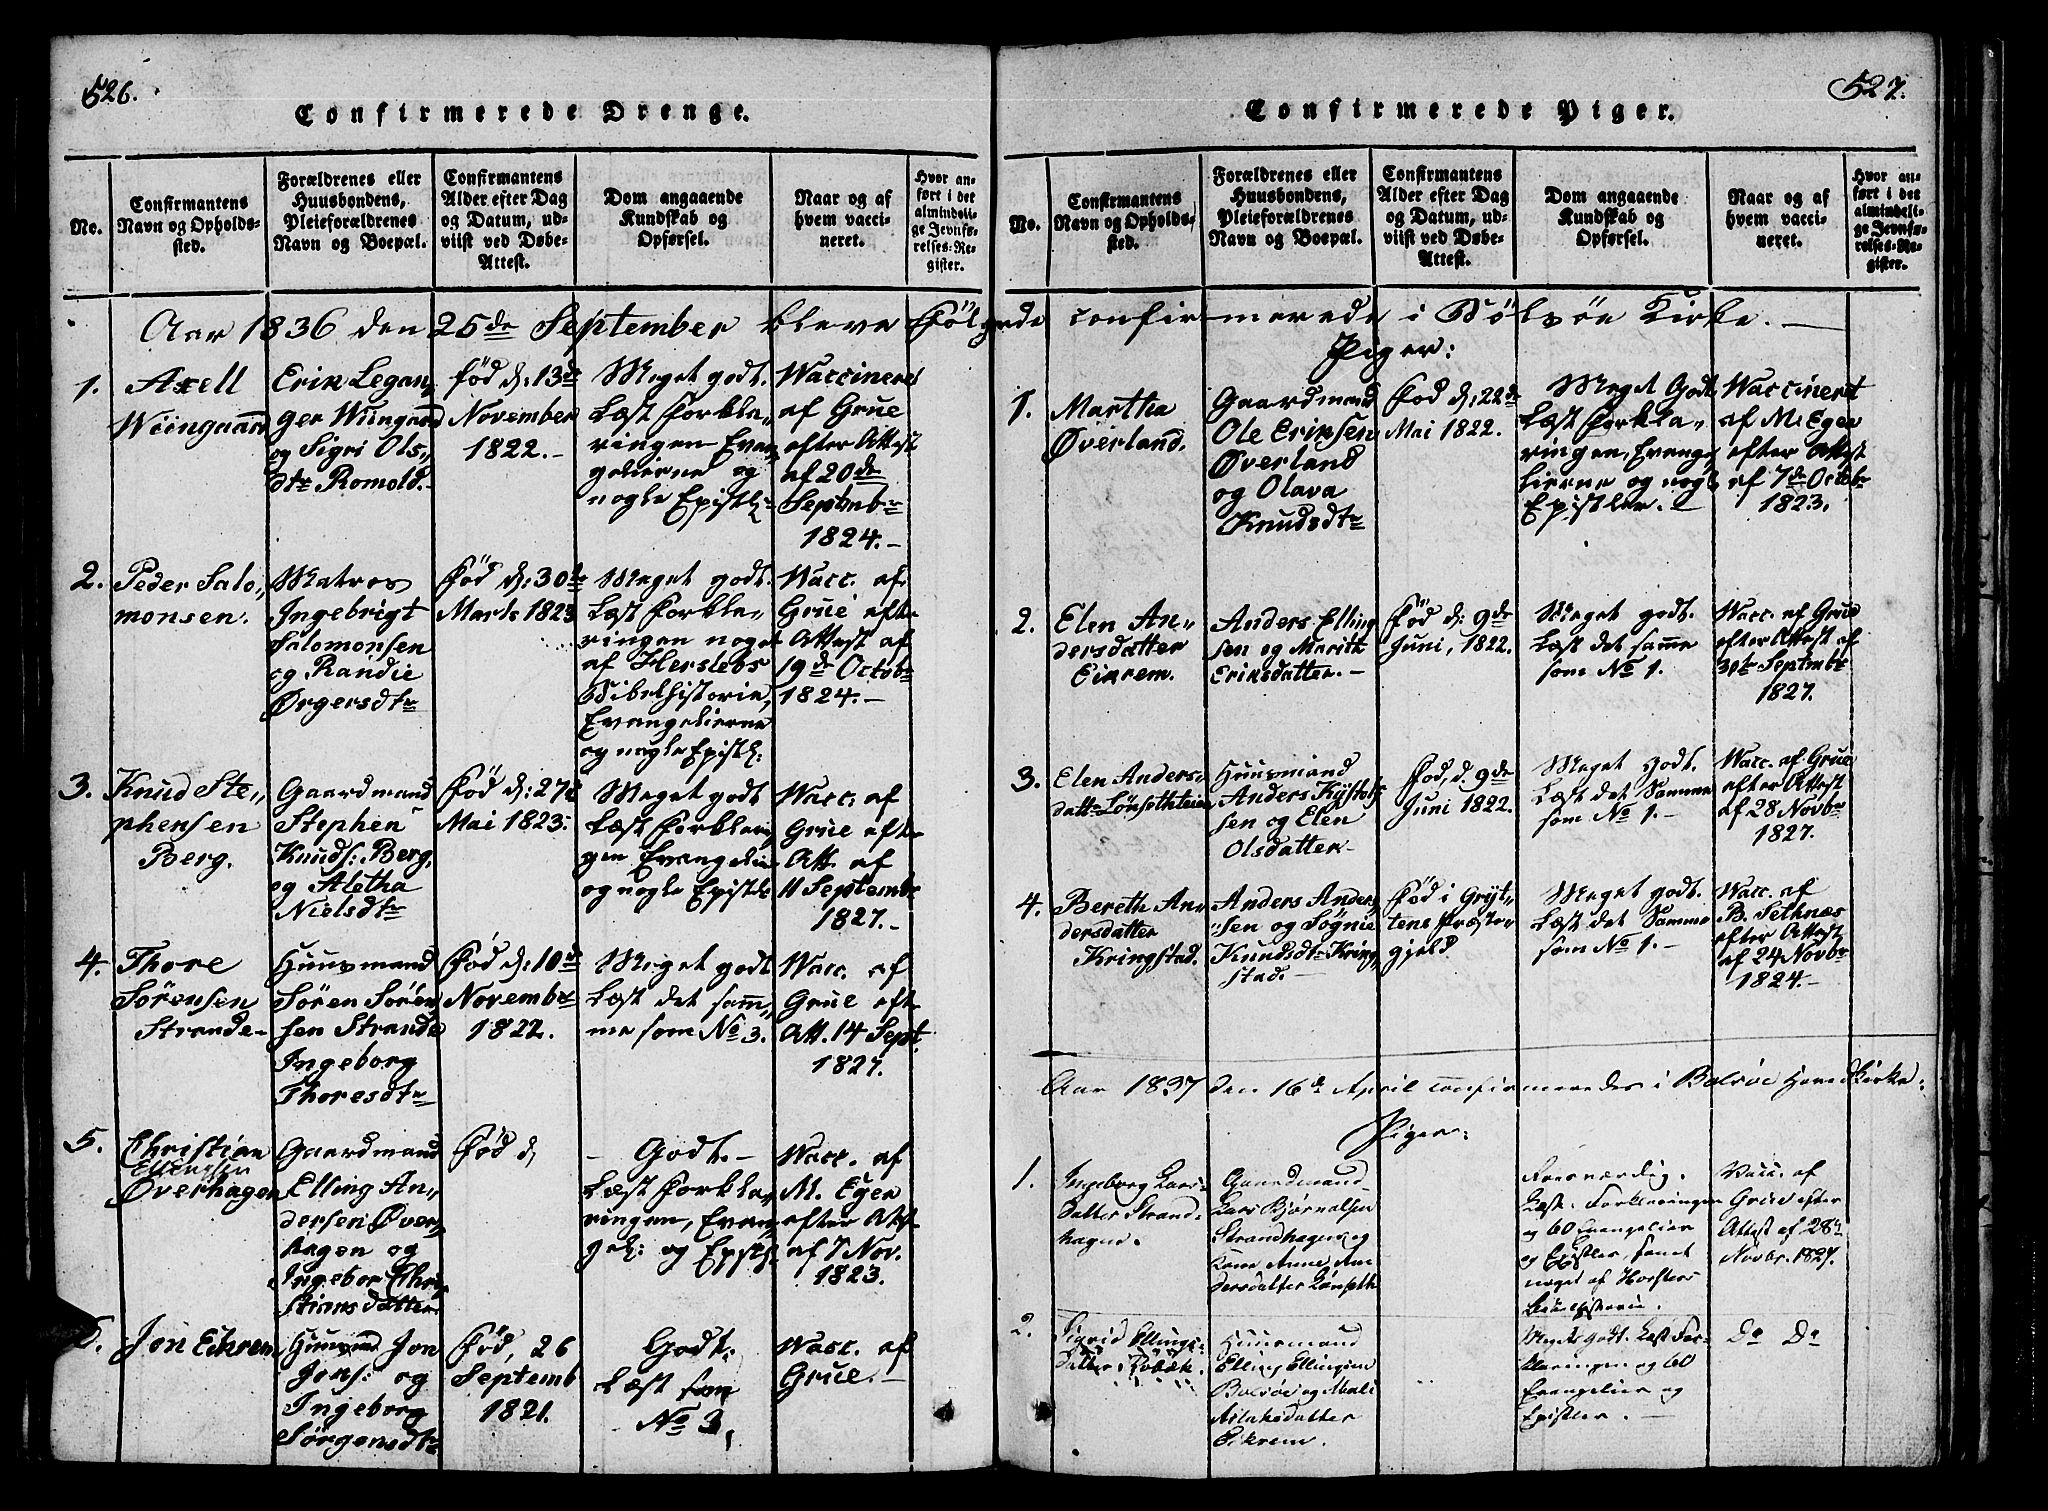 526.
Confirmerede Drenge.
No.
Confirmantens
Navn og Opholds-
sted.
Forældrenes eller
Huusbondens,
Pleieforældrenes
Navn og Boepæl.
Confirmantens
Alder efter Dag
og Datum, ud-
viist ved Døbe-
Attest.
Dom angaaende
Kundskab og
Opførsel.
Naar og af
hvem vacci-
neret.
Hvor an-
ført i det
almindeli-
ge Jevnfø-
relses-Re-
gister.
Aar 1836 den 25de September bleve Følgende confirmerede i Bolsøe Kirke.
1.
Axell
Wiingaard
Erik Legan,,
ger Wiingaard
og Sigri Ols,,
dtr Romold.-
fød d: 13de
November
1822.-
Meget godt.
Læst Forkla,,
ringen Evan,,
gelierne og
nogle Epistl:
Waccineret
af Grue
efter Attest
af 20de
Septembr
1824.-
2.
Peder Salo,,
monsen.
Matros
Ingebrigt
Salomonsen
og Randie
Ørgersdtr
Fød d: 30te
Marts 1823
Meget godt.
Læst Forkla,,
ringen noget
af Herslebs
Bibelhistorie,
Evangelierne
og nogle Epistl:
Wacc. af
Grue efter
Attest af
19de Octobr
1824.-
3.
Knud Ste,,
phensen
Berg.
Gaardmand
Stephen
Knuds: Berg,
og Aletha
Nielsdtr
Fød d: 27de
Mai 1823.
Meget godt
Læst Forklarin,,
gen Evangelier
og nogle Epistl:
Wacc. af
Grue efter
Att. af
11 Septembr
1827.-
4.
Thore
Sørensen
Strande-
Huusmand
Søren Søren
sen Strande
Ingeborg
Thoresdtr
Fød d: 10de
Novembr
1822.
Meget godt
Læst det sam,,
me som No 3.
Wacc. af
Grue eft
Att. 14 Sept.
1827.
5.
Christian
Ellingsen
Øverhagen
Gaardmand
Elling An,,
dersen Øver,,
hagen og
Ingebor Chri,,
stiansdatter
Fød d
- Godt.-
Læst Forkla,,
ringen, Evan,,
gel: og Epistl.
Wacc. af
M. Eger
efter Att
af 7 Nov.
1823.
6.
Jon Eikrem
Huusmd Jon
Jons: og
Ingeborg
Sørgensdtr
Fød, 26
Septemb
1821.
Godt.
Læst som
No 3,
Wacc. af
Grue.-
527.
Confirmerede Piger.
No.
Confirmantens
Navn og Opholds-
sted.
Forældrenes eller
Huusbondens,
Pleieforældrenes
Navn og Boepæl.
Confirmantens
Alder efter Dag
og Datum, ud-
viist ved Døbe-
Attest.
Dom angaaende
Kundskab og
Opførsel.
Naar og af
hvem vacci-
neret.
Hvor an-
ført i det
almindeli-
ge Jevnfø-
relses-Re-
gister.
Piger:
1.
Martha
Øverland.
Gaardmand
Ole Eriksen
Øverland
og Olava
Knudsdtr
Fød d: 22de
Mai 1822.
Meget Godt
Læst Forkla,,
ringen, Evange,,
lierne og nogle
Epistler.-
Waccineret
af M. Eger
efter Attest
af 7de Octobr
1823.
2.
Elen An,,
dersdatter
Eikrem.
Anders Elling
sen og Marith
Eriksdatter.-
Fød d: 9de
Juni, 1822.
Meget godt.
Læst det samme
som No 1.
Wacc. af Grue
efter Attest af
30te Septembr
1827.
3.
Elen Anders,,
datter Lønsethteien
Huusmand
Anders Kystols
sen og Elen
Olsdatter-
Fød, d. 9de
Juni 1822.
Meget godt.
Læst det Samme
som No 1.-
Wacc. af Grue
efter Attest
af 28 Novbr
1827.
4.
Bereth An,,
dersdatter
Kringstad.
Anders Anders,,
sen og Søgnie
Knudsdtr Kring,,
stad.-
Fød i Gryt,,
tens Præste,,
gjeld
Meget godt.
Læst det Samme
som No 1.-
Wacc. af
B. Sethnæs
efter Attest
af 24 Novbr
1824.-
Aar 1837 den 16de April confirmeredes i Bolsøe Hovedkirke:
Piger:
1.
Ingeborg Lars-
datter Strand-
hagen.
Gaardmand
Lars Bjørnalsen
Strandhagen og
Kone Anne An
dersdatter Lønseth
Roesværdig.
Læst: Forklaringen
og 60 Evangelier
og Epistler, samt
noget af Herslebs
Bibelhistorie.
Vacc. af
Grue efter
Attest af 28de
Novbr. 1827.
2.
Sigrid Ellings-
datter Robæk.
Huusmand
Elling Ellingsen
Bolsøe og Mali
Aslaksdatter
Eikrem.
Meget godt. Læst For-
klaringen og 60
Evangelier og
Epistler.-
Do Do